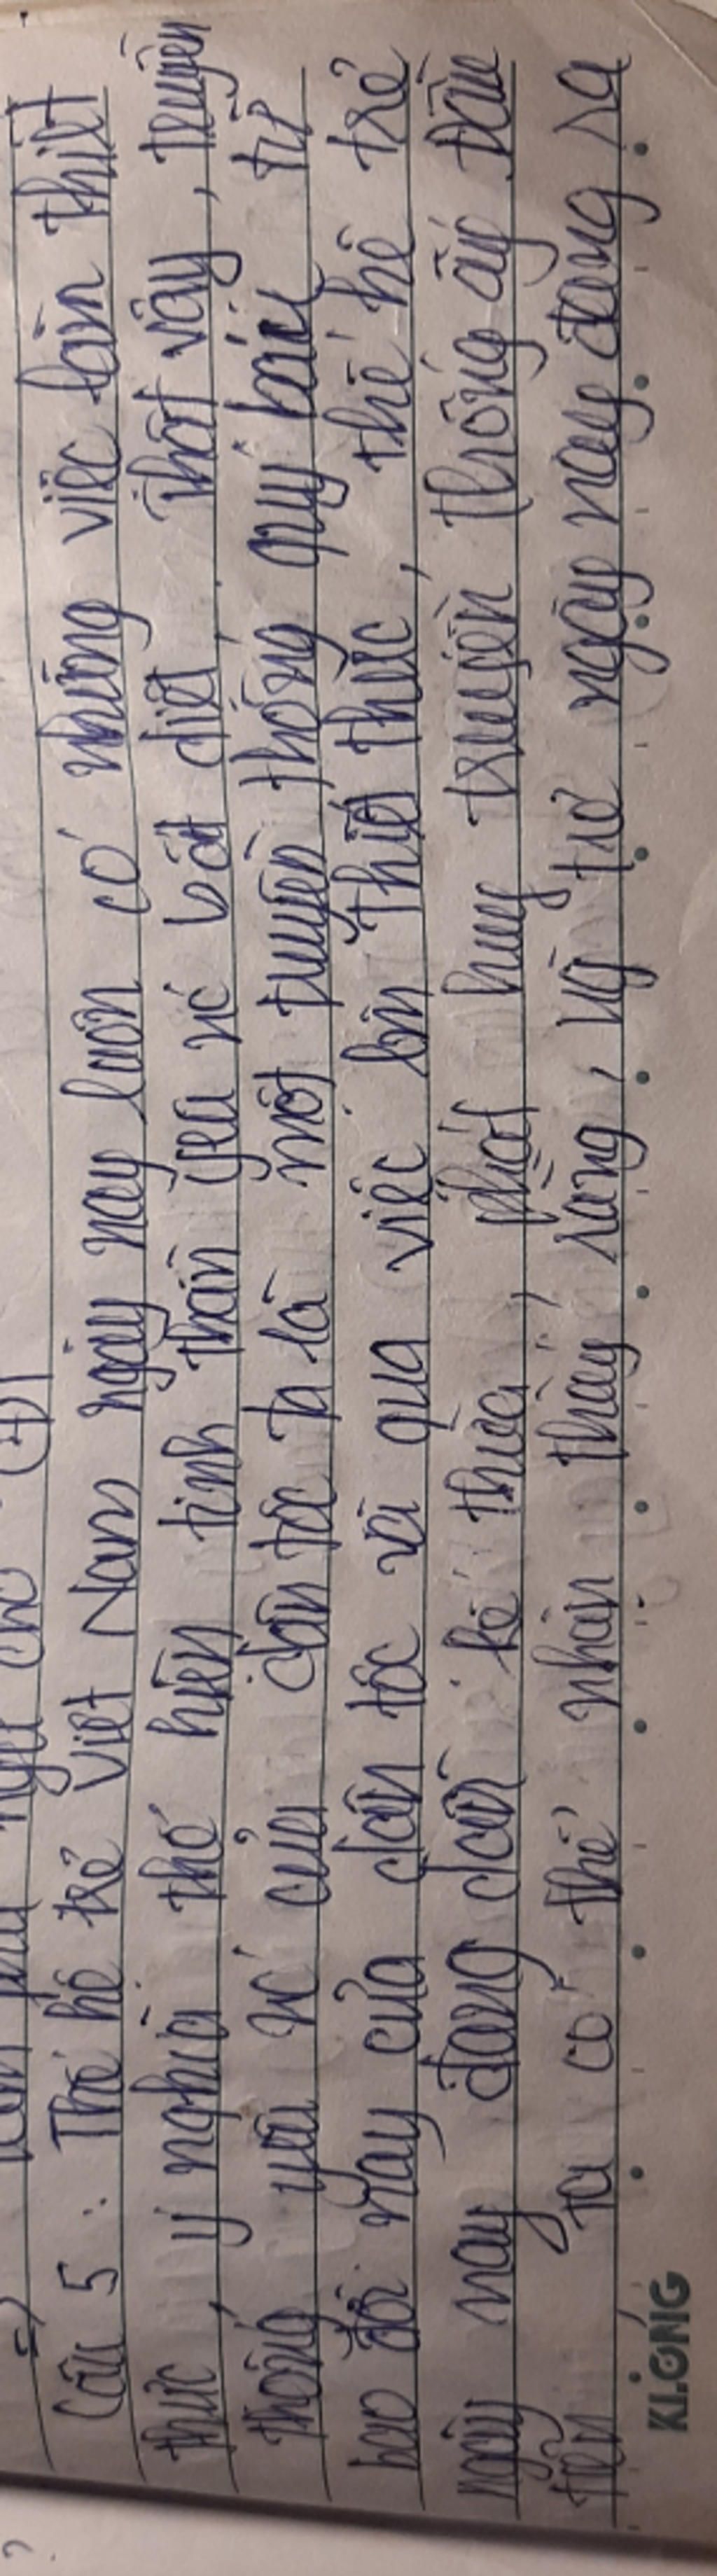 Câu 5 : Thế hệ trẻ Việt Nam ngày nay luôn có những việc làm thiết
thực, ý nghĩa thể hiện tinh thần yêu nc bất diệt. Thật vậy, truyền
thống yêu nc của dân tộc ta là một truyền thống quý báu từ
bao đời nay của dân tộc và qua việc làm thiết thực, thế hệ trẻ
ngày nay đang dần kế thừa, phát huy truyền thống ấy. Đầu
tiên ta có thể nhận thấy rằng, hệ trẻ ngày nay đang ra
KLONG